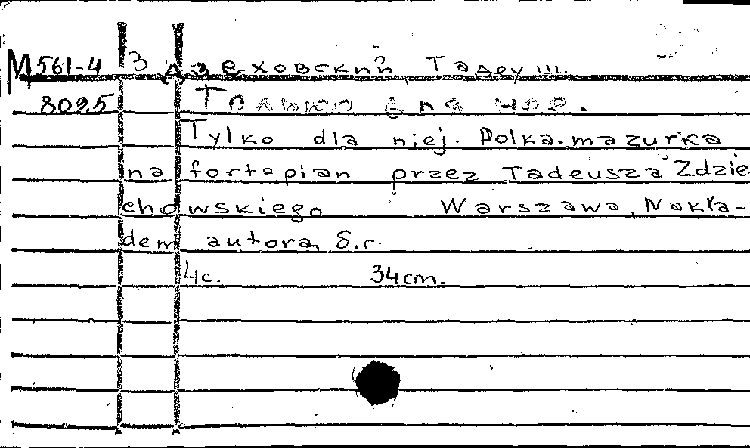 М561-4 Здзеховский Тадеуш.
8095 Только для нее.
Tylko dla niej. Polka-mazurka
na fortepian przez Tadeusza Zdzie
chowskiego Warszawa, Nakła-
dem autora, S.r.
4с. 34cm.